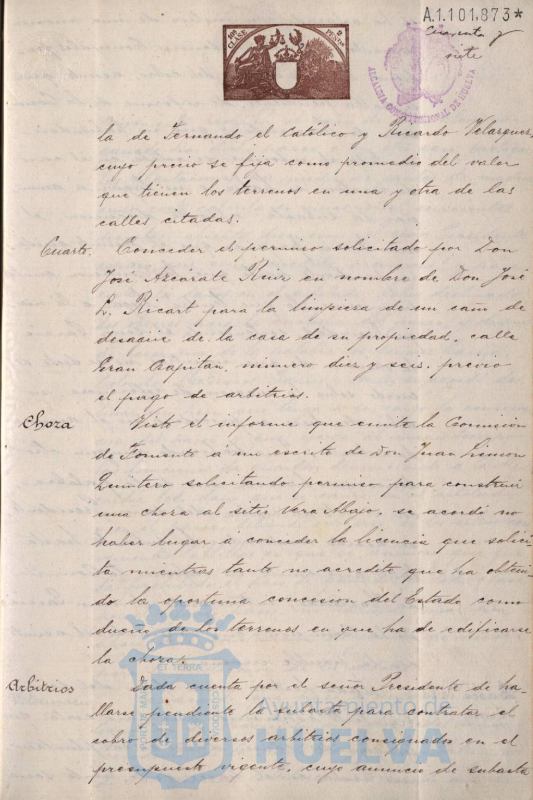 A.1.101.873*
Cuarenta y
siete
10ª CLASE 2 PESETAS
ALCALDIA CONSTITUCIONAL DE HUELVA
la de Fernando el Católico y Ricardo Velazquez,
cuyo precio se fija como promedio del valor
que tienen los terrenos en una y otra de las
calles citadas.
Cuarto. Conceder el permiso solicitado por Don
José Azcárate Ruiz en nombre de Don José
L. Ricart para la limpieza de un caño de
desagüe de la casa de su propiedad, calle
Gran Capitan, número diez y seis, previo
el pago de arbitrios.
Choza Visto el informe que emite la Comisión
de Fomento a un escrito de Don Juan Limon
Quintero solicitando permiso para construir
una choza al sitio Vera Abajo, se acordó no
haber lugar á conceder la licencia que solici-
ta mientras tanto no acredite que ha obteni-
do la oportuna concesion del Estado como
dueño de los terrenos en que ha de edificarse
la choza.
Arbitrios Dada cuenta por el señor Presidente de ha-
llarse pendiente la subasta para contratar el
cobro de diversos arbitrios consignados en el
presupuesto vigente, cuyo anuncio de subasta
Ayuntamiento de
HUELVA